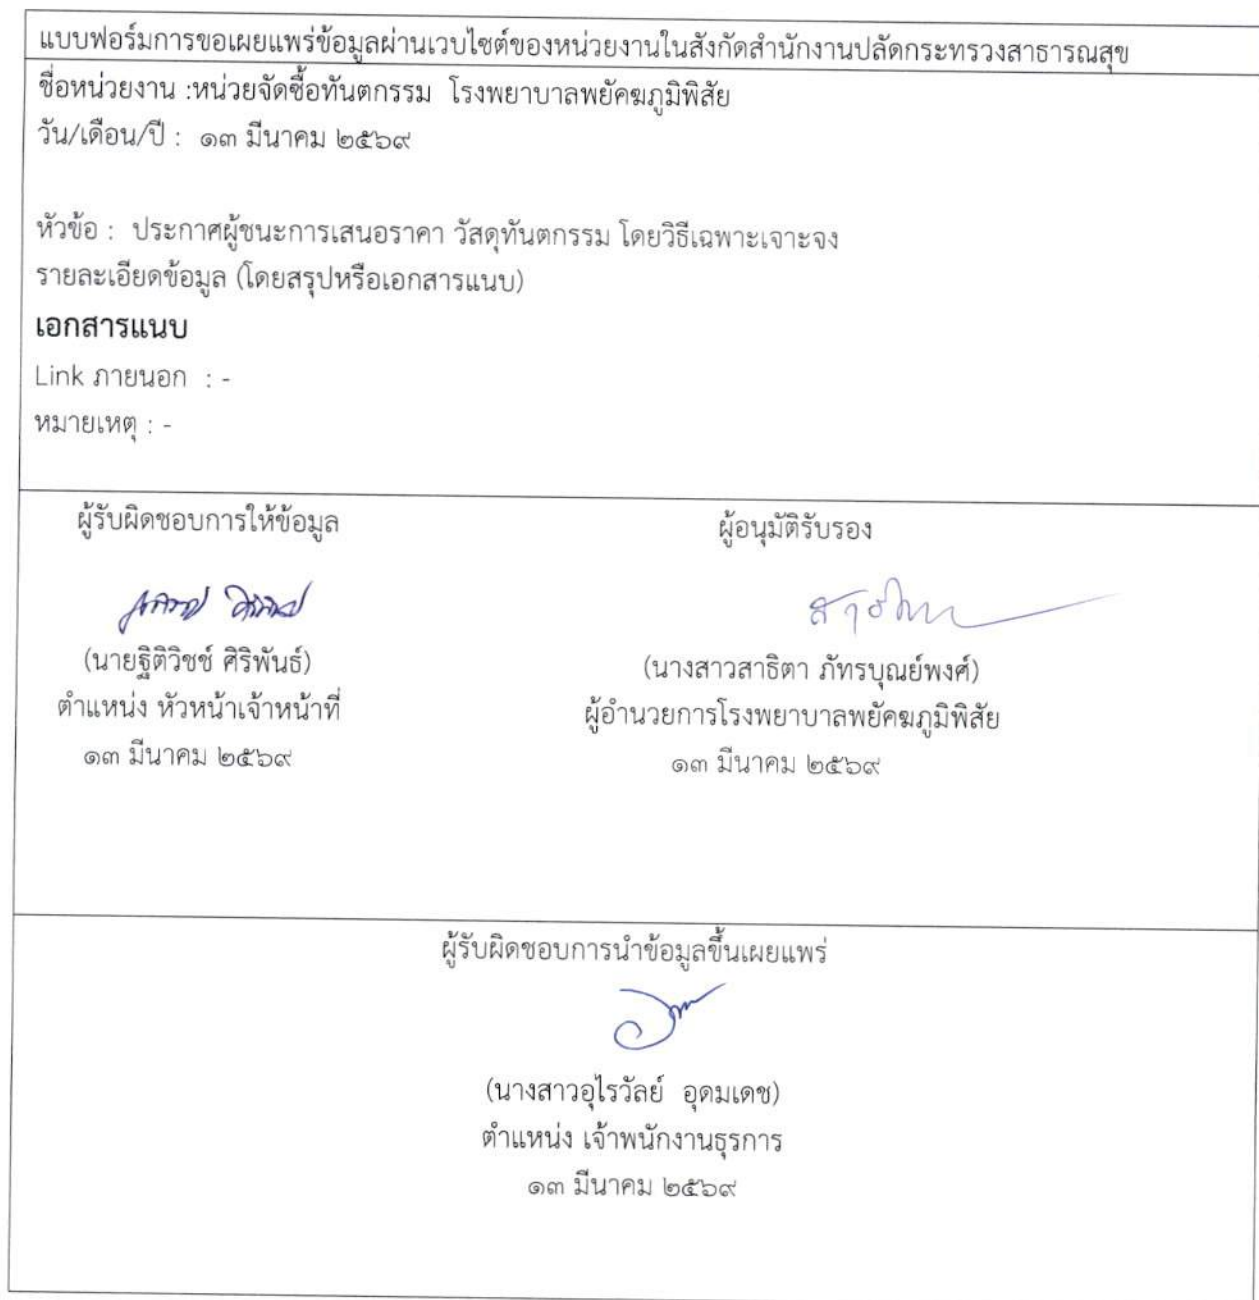 แบบฟอร์มการขอเผยแพร่ข้อมูลผ่านเวบไซต์ของหน่วยงานในสังกัดสำนักงานปลัดกระทรวงสาธารณสุข
ชื่อหน่วยงาน :หน่วยจัดซื้อทันตกรรม โรงพยาบาลพยัคฆภูมิพิสัย
วัน/เดือน/ปี : ๑๓ มีนาคม ๒๕๖๙
หัวข้อ : ประกาศผู้ชนะการเสนอราคา วัสดุทันตกรรม โดยวิธีเฉพาะเจาะจง
รายละเอียดข้อมูล (โดยสรุปหรือเอกสารแนบ)
เอกสารแนบ
Link ภายนอก : -
หมายเหตุ : -
ผู้รับผิดชอบการให้ข้อมูล
(นายฐิติวิชช์ ศิริพันธ์)
ตำแหน่ง หัวหน้าเจ้าหน้าที่
๑๓ มีนาคม ๒๕๖๙
ผู้อนุมัติรับรอง
(นางสาวสาธิตา ภัทรบุณย์พงศ์)
ผู้อำนวยการโรงพยาบาลพยัคฆภูมิพิสัย
๑๓ มีนาคม ๒๕๖๙
ผู้รับผิดชอบการนำข้อมูลขึ้นเผยแพร่
(นางสาวอุไรวัลย์ อุดมเดช)
ตำแหน่ง เจ้าพนักงานธุรการ
๑๓ มีนาคม ๒๕๖๙